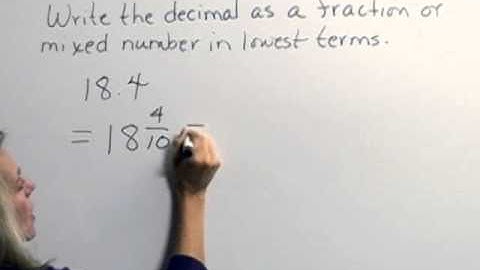 Write the decimal as a fraction or
mixed number in lowest terms.
18.4
= 18 4/10 =